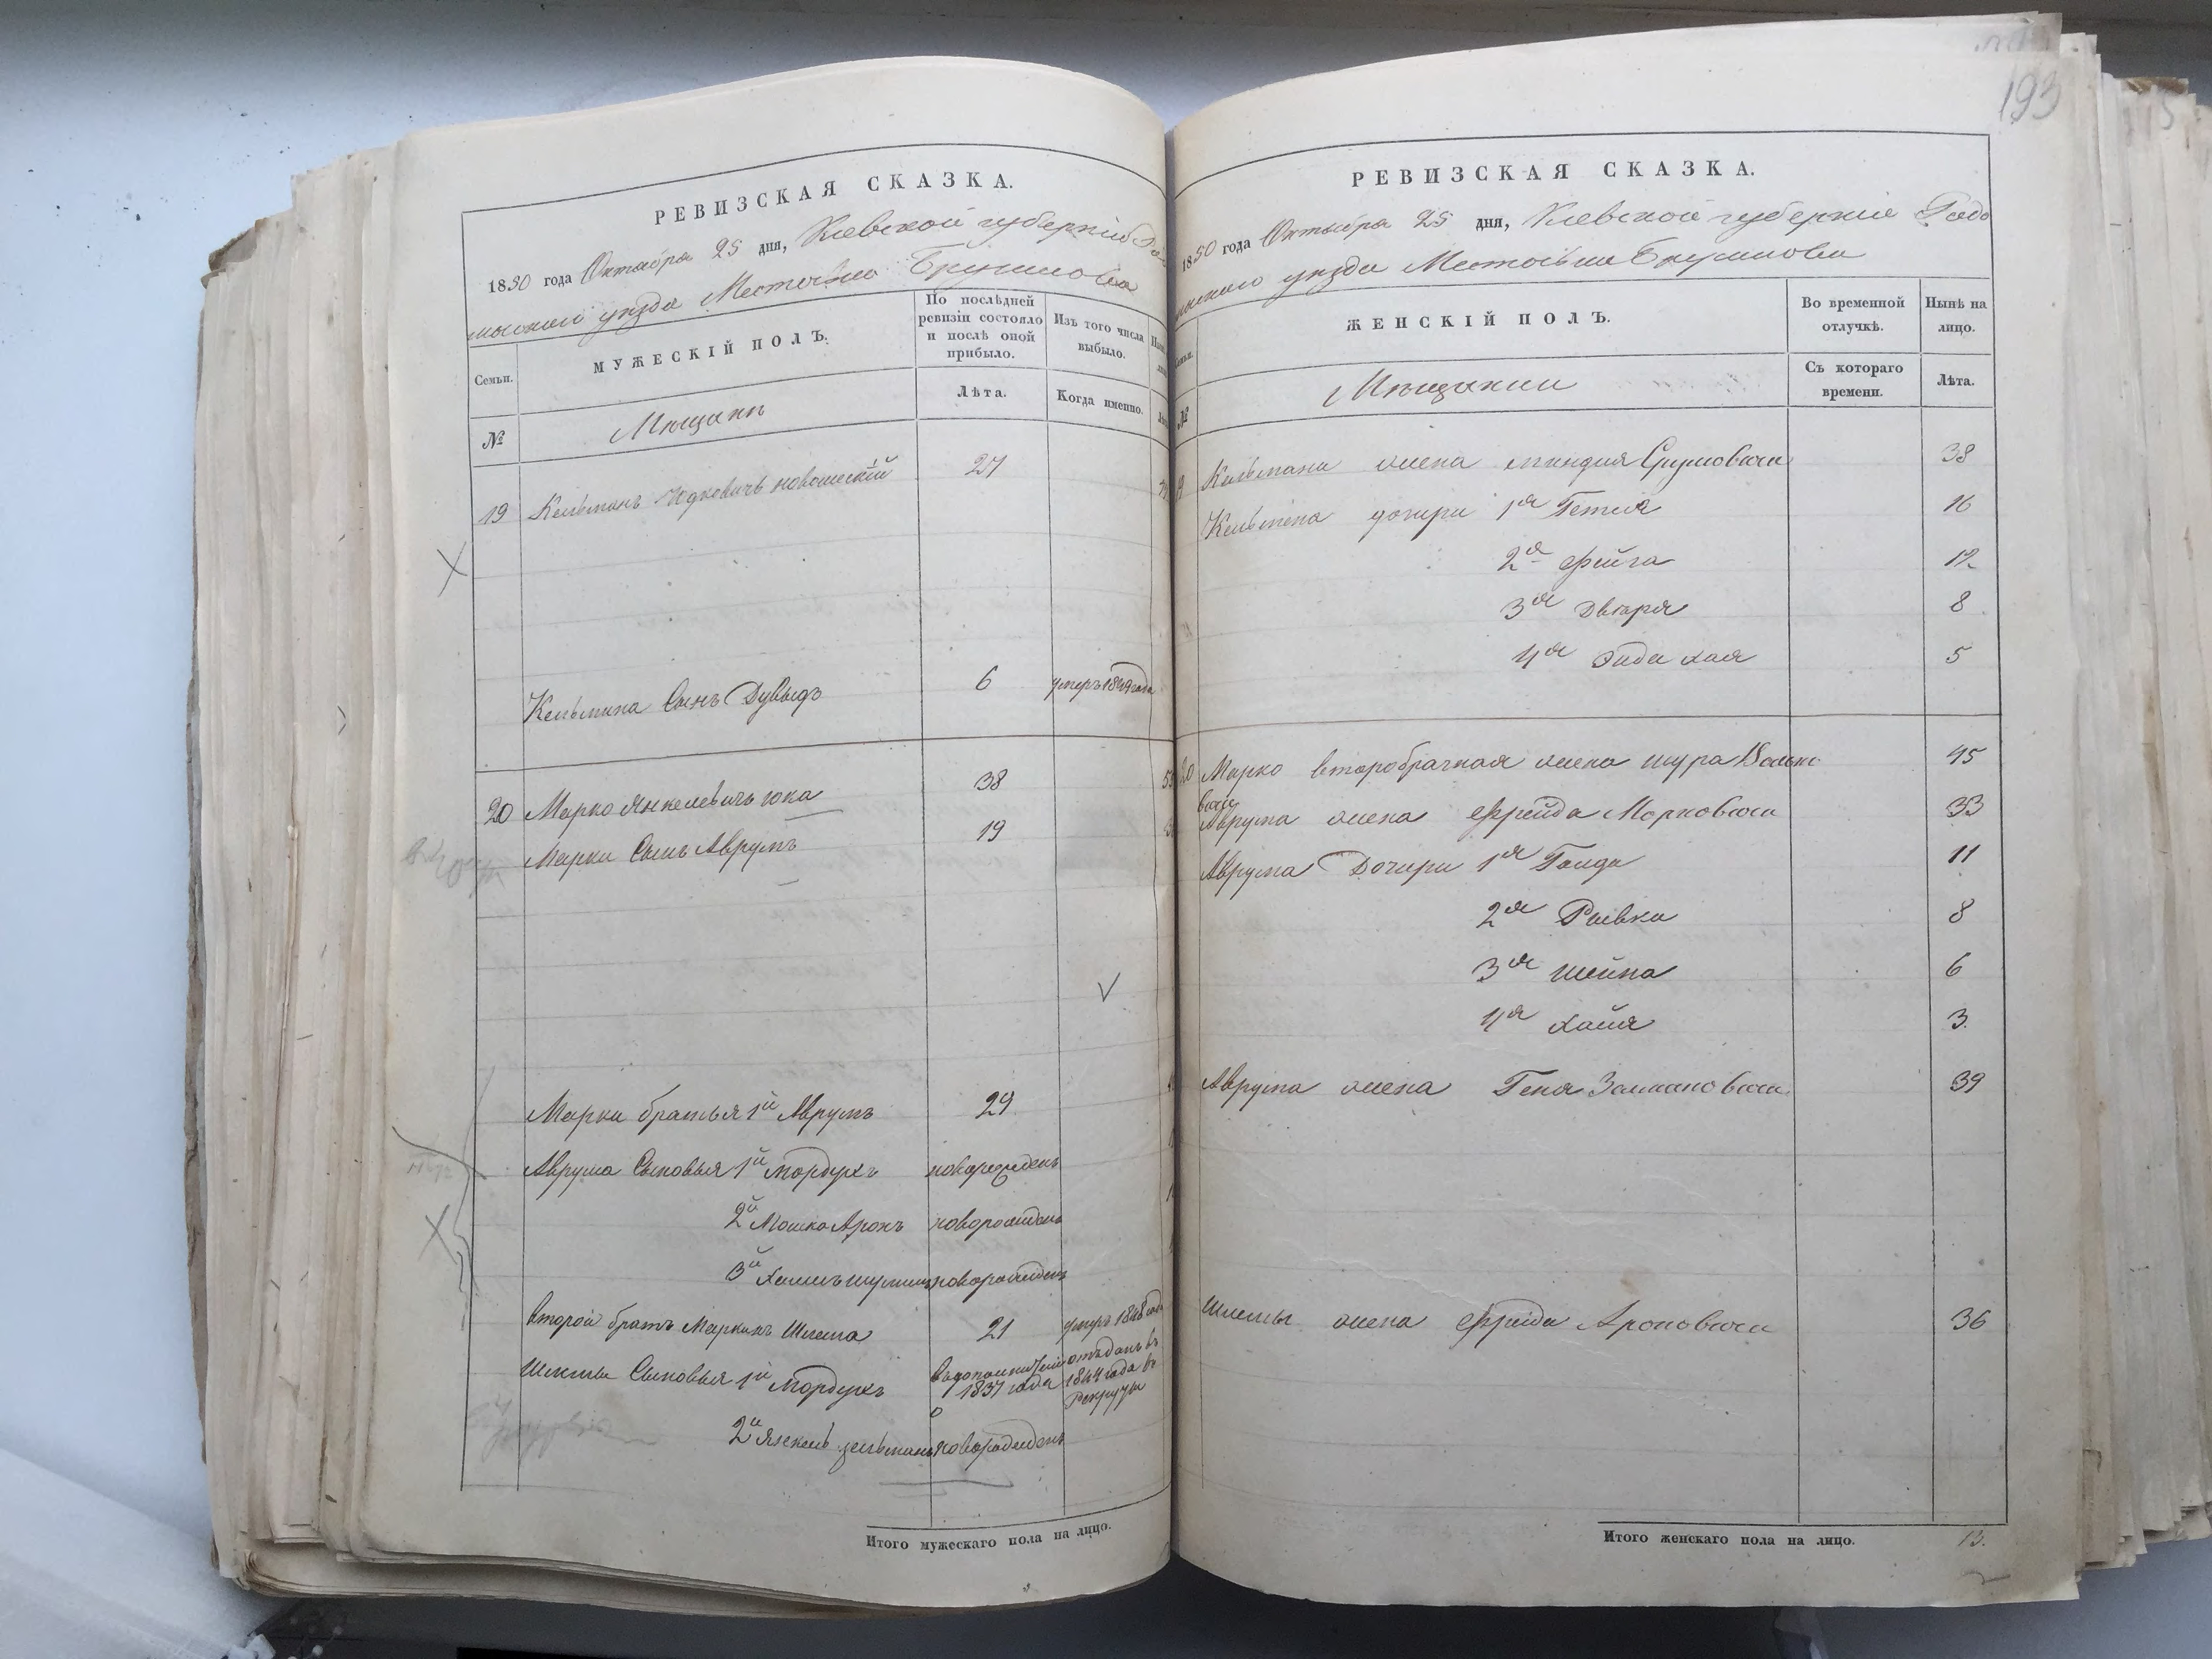 РЕВИЗСКАЯ СКАЗКА.
1850 года Октября 25 дня, Кіевской губерніи
уѣзда Местечка Брусилова
Семьи.
МУЖЕСКІЙ ПОЛЪ.
По послѣдней ревизіи состояло и послѣ оной прибыло.
Изъ того числа выбыло.
№
Мѣщанъ
Лѣта.
Когда именно.
19 Кельманъ Юдковичъ 27
Кельмана Сынъ Дувыдъ 6 умеръ 1849 года
20 Марко Янкелевичъ юка 38
Марки Сынъ Аврумъ 19
Марки братья 1й Аврумъ 29
Аврума Сыновья 1й Мордухъ новорожденъ
2й Мошко Аронъ новорожденъ
3й новорожденъ
второй братъ Маркинъ Шлема 21 умеръ 1848 года
Шлемы Сыновья 1й Мордухъ 1837 года отъданъ въ 1844 года въ Рекруты
2й Янкель зельманъ новорожденъ
Итого мужескаго пола на лицо.
193
РЕВИЗСКАЯ СКАЗКА.
1850 года Октября 25 дня, Кіевской губерніи Радо
мысльского уѣзда Местечка Брусилова
ЖЕНСКІЙ ПОЛЪ.
Во временной отлучкѣ.
Нынѣ на лицо.
№
Мѣщанки
Съ котораго времени.
Лѣта.
Кельмана жена Срулювна 38
Кельмана дочери 1я 16
2я Фейга 12
3я Двойра 8
4я Хая 5
20 Марко второбрачная жена шура Волько
вна
45
Аврума жена Фрейда Марковна 33
Аврума Дочери 1я Голда 11
2я Ривка 8
3я Шейна 6
4я Хайя 3
Аврума жена Геня Залмановна 39
Шлемы жена Фрейда Ароновна 36
Итого женскаго пола на лицо. 13.